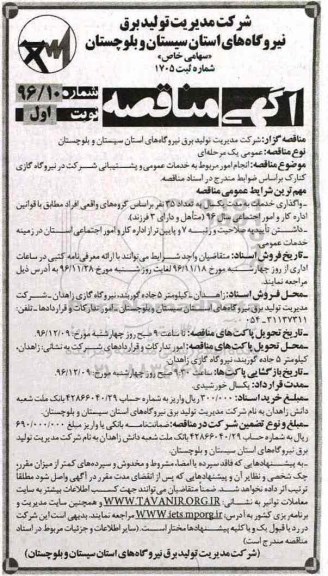 شرکت مدیریت تولید برق
نیروگاه‌های استان سیستان و بلوچستان
«سهامی خاص»
شماره ثبت ۱۷۰۵
آگهی مناقصه
شماره ۹۶/۱۰
نوبت اول
مناقصه گزار: شرکت مدیریت تولید برق نیروگاه‌های استان سیستان و بلوچستان
نوع مناقصه: عمومی یک مرحله‌ای
موضوع مناقصه: انجام امور مربوط به خدمات عمومی و پشتیبانی شرکت در نیروگاه گازی
کنارک براساس ضوابط مندرج در اسناد مناقصه.
مهم‌ترین شرایط عمومی مناقصه
-واگذاری خدمات به مدت یکسال به تعداد ۳۵ نفر براساس گروه‌های واقعی افراد مطابق با قوانین
اداره کار و امور اجتماعی سال ۹۶ (متأهل و دارای ۲ فرزند).
-داشتن تأییدیه صلاحیت و رتبه ۷ و پایین‌تر از اداره کار و امور اجتماعی استان در زمینه
خدمات عمومی
-تاریخ فروش اسناد: متقاضیان واجد شرایط می‌توانند با ارائه معرفی‌نامه کتبی در ساعات
اداری از روز چهارشنبه مورخ ۹۶/۱۱/۱۸ لغایت روز شنبه مورخ ۹۶/۱۱/۲۸ به آدرس ذیل
مراجعه نمایند.
-محل فروش اسناد: زاهدان - کیلومتر ۵ جاده گوربند، نیروگاه گازی زاهدان - شرکت
مدیریت تولید برق نیروگاه‌های استان سیستان و بلوچستان - امور تدارکات و قراردادها - تلفن:
۰۵۴-۳۱۱۳۷۳۱۱
-تاریخ تحویل پاکت‌های مناقصه: تا ساعت ۹ صبح روز چهارشنبه مورخ ۹۶/۱۲/۰۹
-محل تحویل پاکت‌های مناقصه: امور تدارکات و قراردادهای شرکت به نشانی: زاهدان،
کیلومتر ۵ جاده گوربند، نیروگاه گازی زاهدان.
-تاریخ بازگشایی پاکت‌ها: ساعت ۹:۳۰ صبح روز چهارشنبه مورخ ۹۶/۱۲/۰۹
-مدت قرارداد: یکسال خورشیدی.
-مبلغ خرید اسناد: ۳۰۰/۰۰۰ ریال واریز به شماره حساب ۴۲۸۶۶۰۴۰/۲۹ بانک ملت شعبه
دانش زاهدان به نام شرکت مدیریت تولید برق نیروگاه‌های استان سیستان و بلوچستان.
-مبلغ و نوع تضمین شرکت در مناقصه: ضمانت‌نامه بانکی یا واریز مبلغ ۶۹۰/۰۰۰/۰۰۰
ریال به شماره حساب ۴۲۸۶۶۰۴۰/۲۹ بانک ملت شعبه دانش زاهدان به نام شرکت مدیریت تولید
برق نیروگاه‌های استان سیستان و بلوچستان.
-به پیشنهادهایی که فاقد سپرده یا امضا، مشروط و مخدوش و سپرده‌های کمتر از میزان مقرر،
چک شخصی و نظایر آن و پیشنهادهایی که پس از انقضای مدت مقرر در آگهی واصل شود مطلقا
ترتیب اثر داده نخواهد شد. ضمناً متقاضیان می‌توانند جهت کسب اطلاعات بیشتر به سایت
معاملات توانیر به نشانی: WWW.TAVANIR.ORG.IR و همچنین سایت مدیریت و
برنامه‌ریزی کشور به آدرس: WWW.iets.mporg.ir مراجعه نمایند. بدیهی است این شرکت
در رد یا قبول یک و یا کلیه پیشنهادها مختار است. (سایر اطلاعات و جزئیات مربوط در اسناد
مناقصه مندرج است)
(شرکت مدیریت تولید برق نیروگاه‌های استان سیستان و بلوچستان)